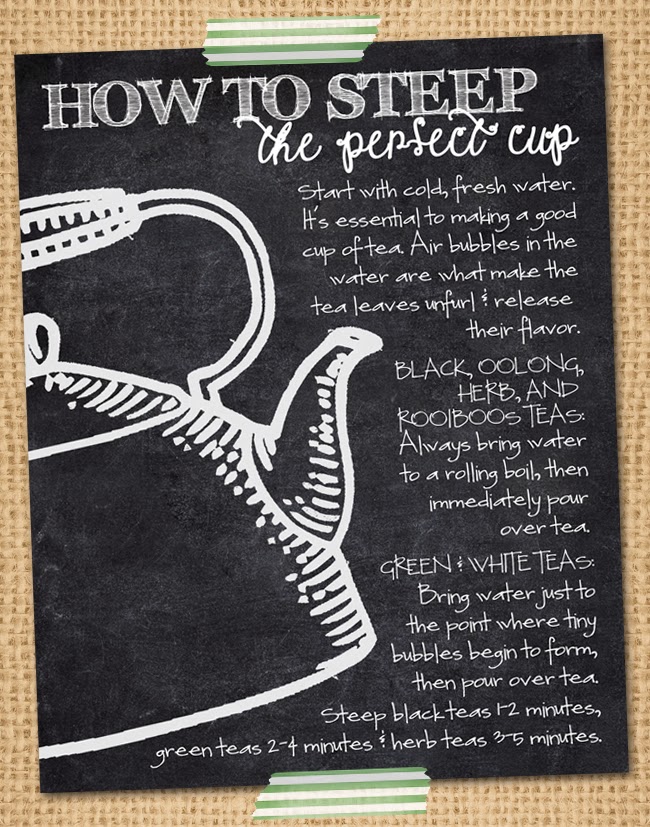 HOW TO STEEP
the perfect cup
Start with cold, fresh water.
It's essential to making a good
cup of tea. Air bubbles in the
water are what make the
tea leaves unfurl & release
their flavor.
BLACK, OOLONG,
HERB, AND
ROOIBOOS TEAS:
Always bring water
to a rolling boil, then
immediately pour
over tea.
GREEN & WHITE TEAS:
Bring water just to
the point where tiny
bubbles begin to form,
then pour over tea.
Steep black teas 1-2 minutes,
green teas 2-4 minutes & herb teas 3-5 minutes.